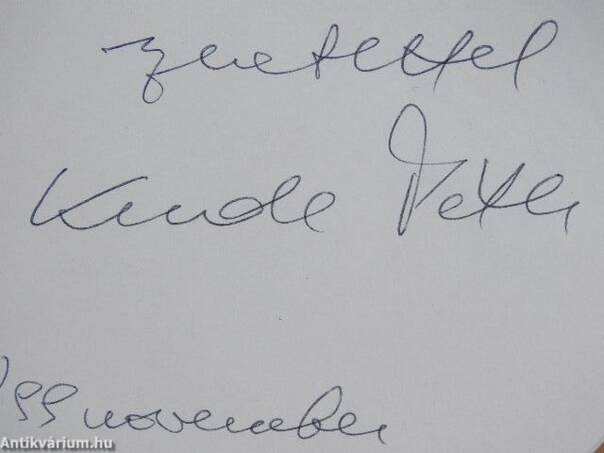 szeretettel
Kende Péter
'99 november
Antikvárium.hu